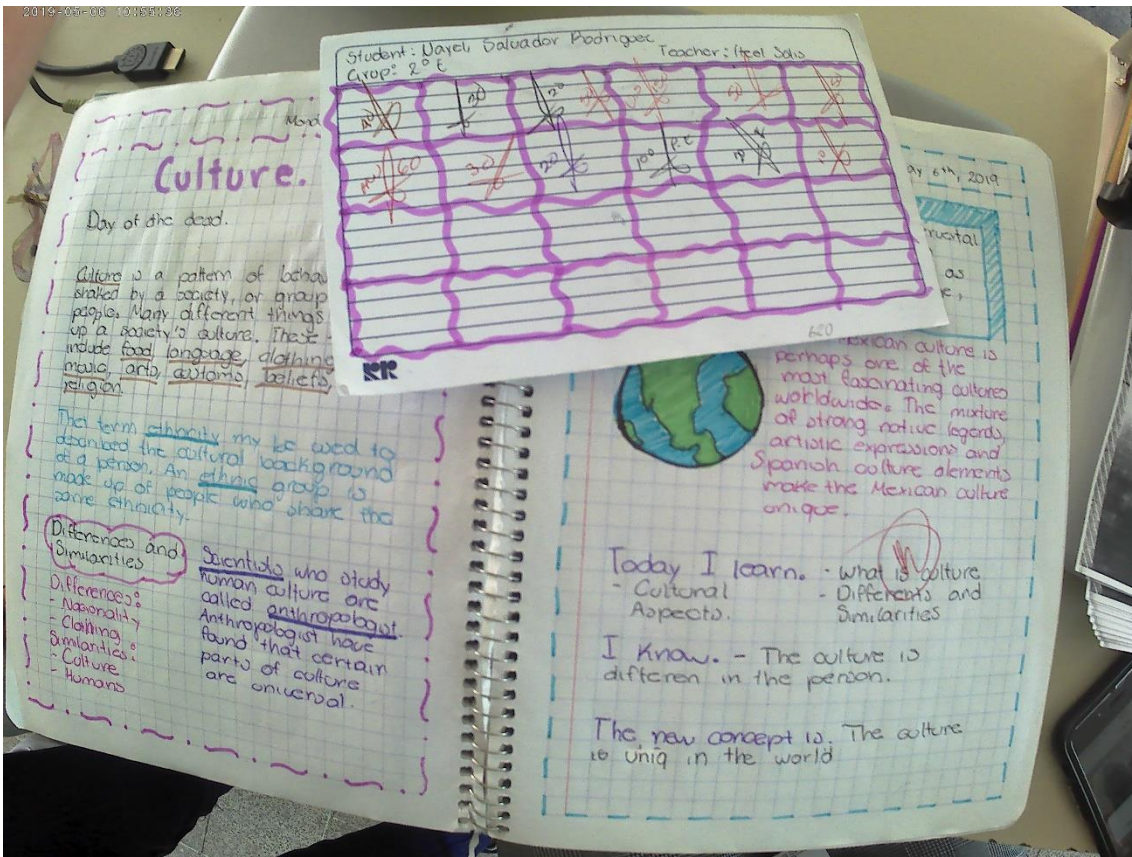 2019-05-06
Student: Nayeli Salvador Rodriguez
Teacher: Itzel Solis
Grup: 2° E
620
Culture.
Day of the dead.
Culture is a pattern of behav
shared by a society, or group
people. Many different things
up a society's culture. These
include food, language, clothing
music, arts, customs, beliefs,
religion.
The term ethnicity my be used to
described the cultural background
of a person. An ethnic group is
made up of people who share the
same ethnicity.
Differences and
Similarities
Differences:
- Nacionality
- Clothing
Similarities:
- Culture
- Humans
Scientists who study
human culture are
called anthropologist.
Anthropologist have
found that certain
parts of culture
are universal.
ay 6th, 2019
as
exican culture is
perhaps one of the
most fascinating cultures
worldwide. The mixture
of strong native legends,
artistic expressions and
Spanish culture elements
make the Mexican culture
unique.
Today I learn. - What is culture
- Cultural
Aspects.
- Differents and
Similarities
I know. - The culture is
differen in the person.
The new concept is. The culture
is uniq in the world